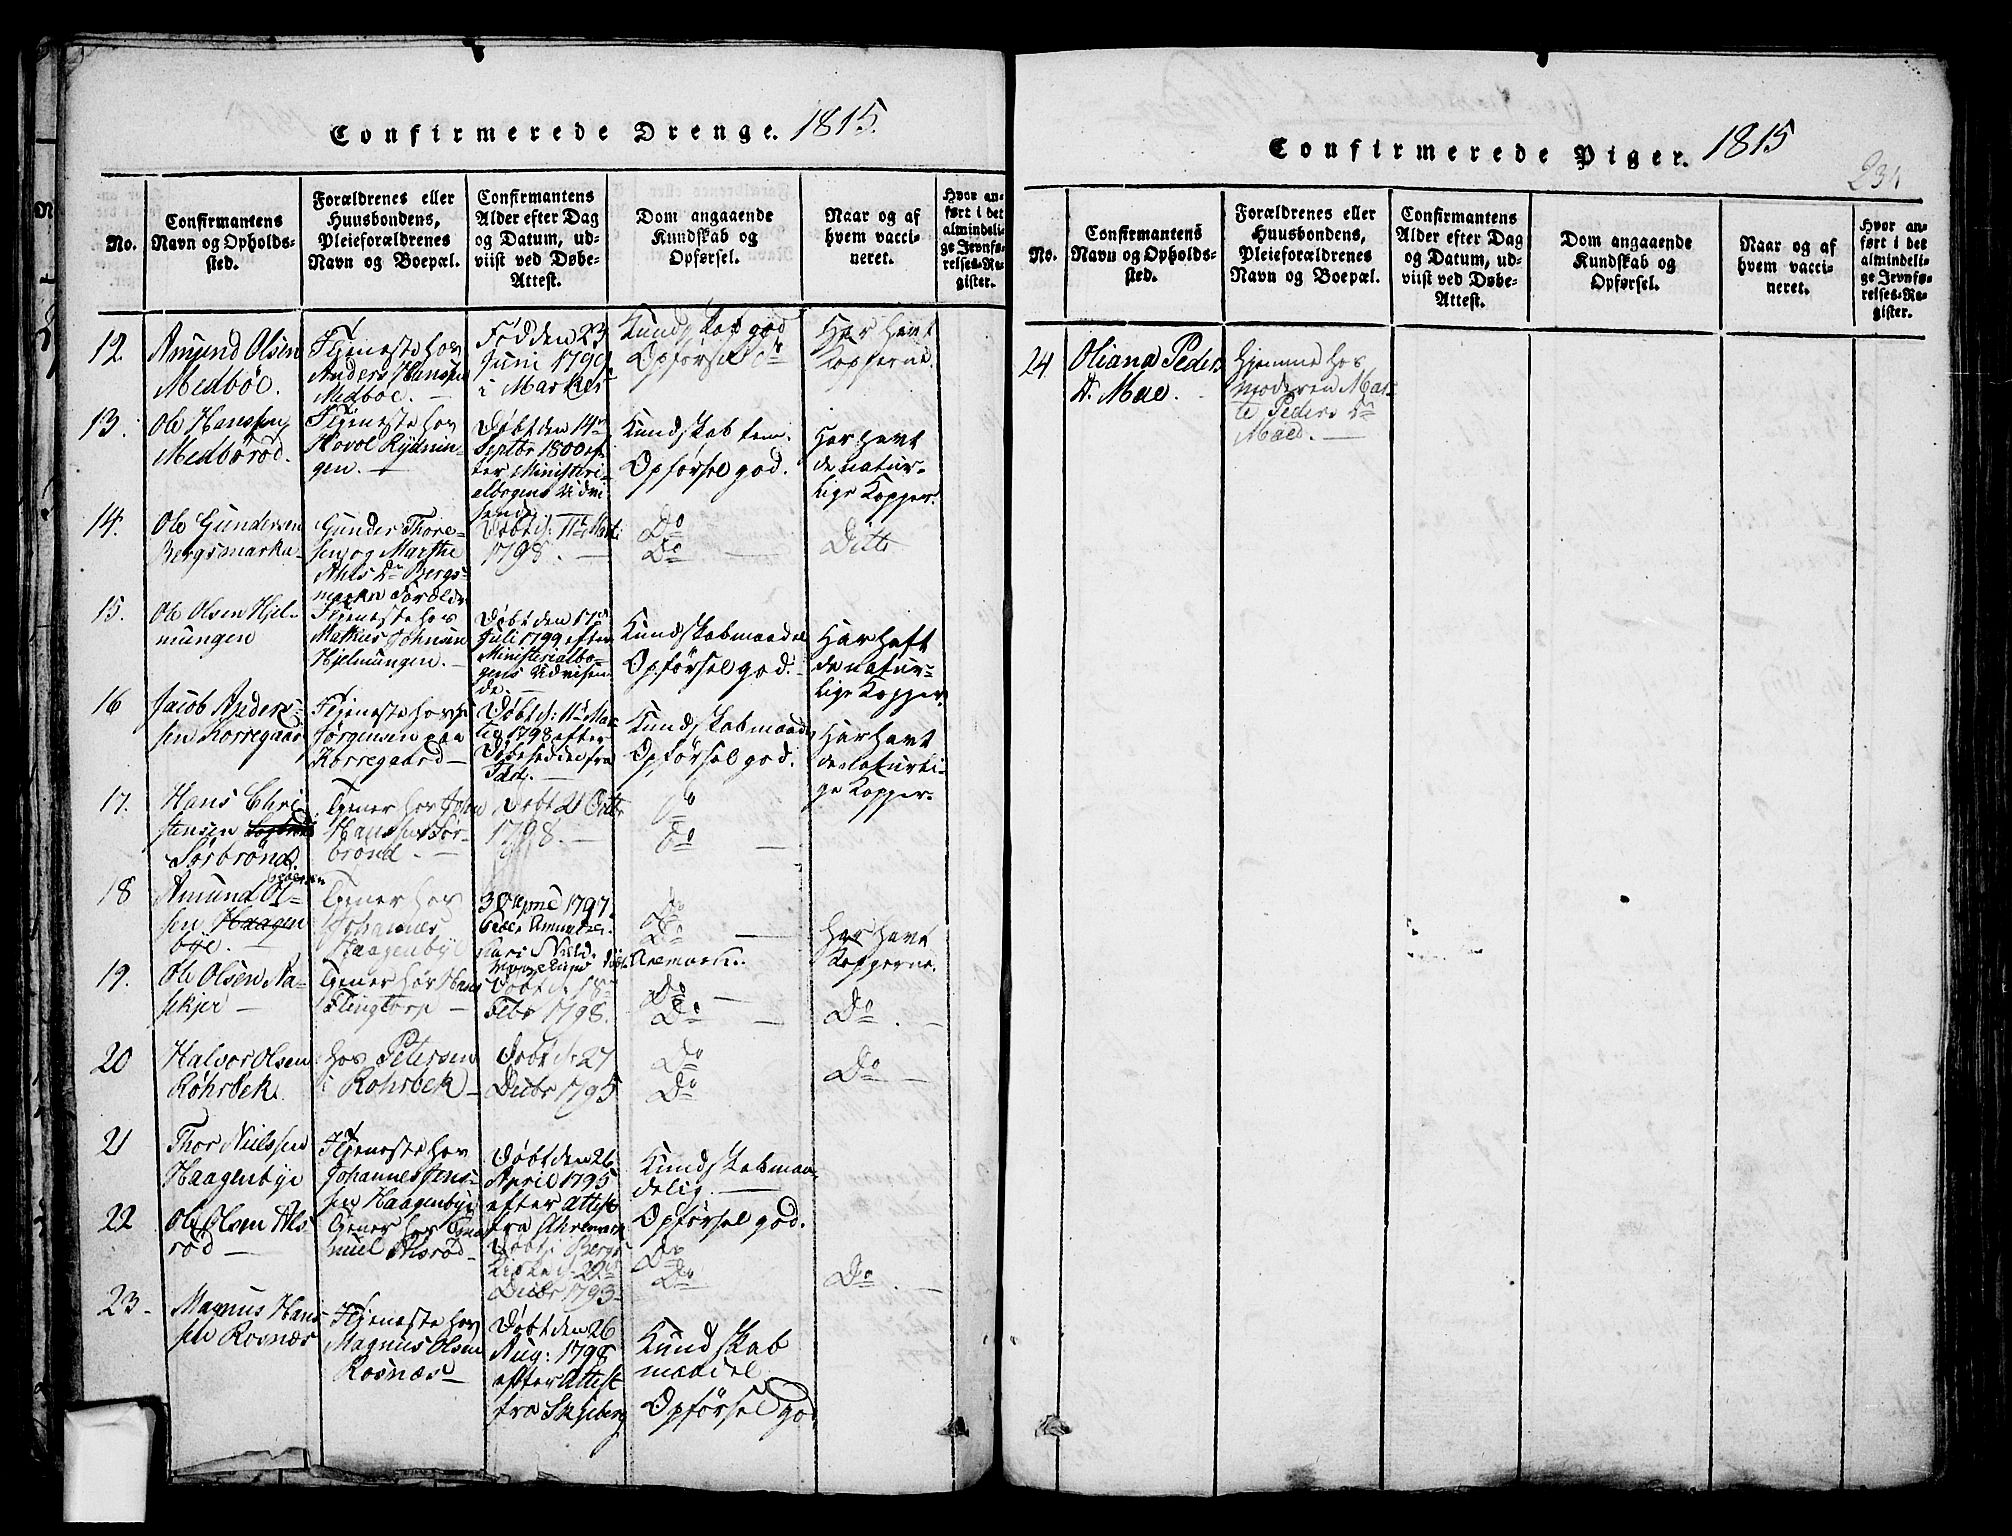 Confirmerede Drenge. 1815.
No.
Confirmantens
Navn og Opholds-
sted.
Forældrenes eller
Huusbondens,
Pleieforældrenes
Navn og Boepæl.
Confirmantens
Alder efter Dag
og Datum, ud-
viist ved Døbe-
Attest.
Dom angaaende
Kundskab og
Opførsel.
Naar og af
hvem vacci-
neret.
Hvor an-
ført i det
almindeli-
ge Jevnfø-
relses-Re-
gister.
12.
Amund Olsen
Medböe.
Tjeneste hos
Anders Hansen
Medböe. —
Född den 23
Juni 1799
i Marker
Kundskab god
Opförsel do
Har havt
Kopperne.
13.
Ole Hanssen
Medböröd.
Tjeneste hos
Hovol Rydnin-
gen. —
Döbt den 14de
Septbr 1800 ef-
ter Ministeri-
albogens Udvi-
sende
Kundskab tem.
Opförsel god.
Har havt
de natur-
lige Kopper.
14.
Ole Gundersen
Bergsmarka
Gunder Thore-
sen og Marthe
Ahls Dr Bergs-
marka Forældre
Döbt d: 11te Marti
1798. —
Do
Do —
Ditto
15.
Ole Olsen Hjel-
mungen
Tjeneste hos
Mathias Johnsen
Hjelmungen. —
Döbt den 17de
Juli 1799 efter
Ministerialbo-
gens Udvisen-
de. —
Kundskab maadel
Opförsel god. -
Har haft
de natur-
lige Kopper.
16
Jacob Ander-
sen Korregaar
Tjeneste hos
Jörgensen paa
Korregaard —
Döbt d: 11te Mar-
tii 1798 efter
Döbesedden fra
Kundskab maade
Opförsel god.
Har havt
de naturli-
ge Kopper.
17.
Hans Chri
stensen
Sörbrönd.
Tjener hos John
Hanssen Sör-
brönd. —
Döbt 21 Octbr
1798. —
Do
Do —
18
Amund Ol-
sen Haagen
bye. —
Pedersen
Tjener hos
Johannes
Haagenbye
1797.
Peder Amundsen.
Kari
Do
Do —
Har havt
Kopperne.
19.
Ole Olsen Na-
skjer —
Tjener hos Hans
Flingtorp —
Döbt d. 18de
Febr 1798.
Do —
Do —
Do. —
20
Halvor Olsen
Röhrbek.
hos Petersen
i Rohrbek —
Döbt d. 27
Decbr 1795
Do
Do
Do —
21
Thor Nielssen
Haagenbye
Tjeneste hos
Johannes Jens-
sen Haagenbye
Döbt den 26
April 1795
efter Attest
fra Ahremark
Kundskab maa-
delig. —
Opförsel god.
22
Ole Olsen Als
röd —
Tjener hos
muel Alsröd —
Döbt i Bergs
Kirke d. 22de
Decbr 1793
Do
Do
Do. —
23 -
Magnus Hans
sen Rosnæs
Tjeneste hos
Magnus Olsen
Rosnæs —
Döbt den 26
Aug: 1798
efter Attest
fra Skjeberg
Kundskab
maadel.
Opförsel god
Confirmerede Piger. 1815
231
No.
Confirmantens
Navn og Opholds-
sted.
Forældrenes eller
Huusbondens,
Pleieforældrenes
Navn og Boepæl.
Confirmantens
Alder efter Dag
og Datum, ud-
viist ved Døbe-
Attest.
Dom angaaende
Kundskab og
Opførsel.
Naar og af
hvem vacci-
neret.
Hvor an-
ført i det
almindeli-
ge Jevnfø-
relses-Re-
gister.
24
Oliana Peders
Dr Mae.
Hjemme hos
moderen Mar-
te Peders Dr
Mae. —